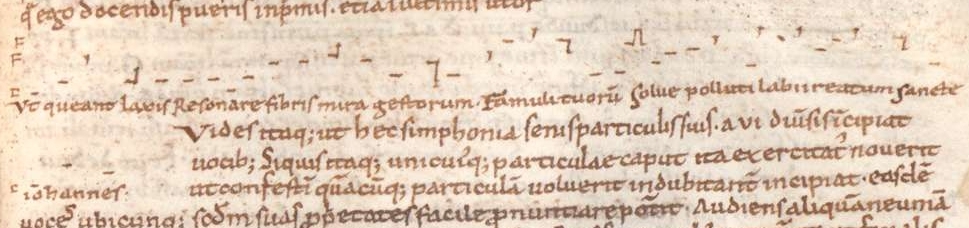 q̄ ego docendis pueris inp̄mis. etiā
F
F
Ut queant laxis Resonare fibris mira gestorum. Famuli tuorū Solue polluti labii reatum Sancte
Vides itaq; ut hec simphonia senis particulis suis. a vi diuersis īcipiat
uocib; Siquis itaq; unicuiq; particulae caput ita exercitat̄ nouerit
c iohannes. ut confestī quācūq; particulā uoluerit indubitant̄ incipiat. easdē
uoces ubicunq; scd̄m suas pp̄etates facile pronuntiare pot̄it. Audiens aliquā neumā